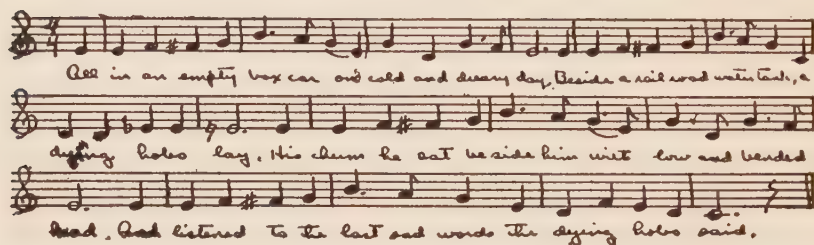 All in an empty box car one cold and dreary day, Beside a railroad water tank, a
dying hobo lay, His chum he sat beside him with low and bended
head, And listened to the last sad words the dying hobo said.